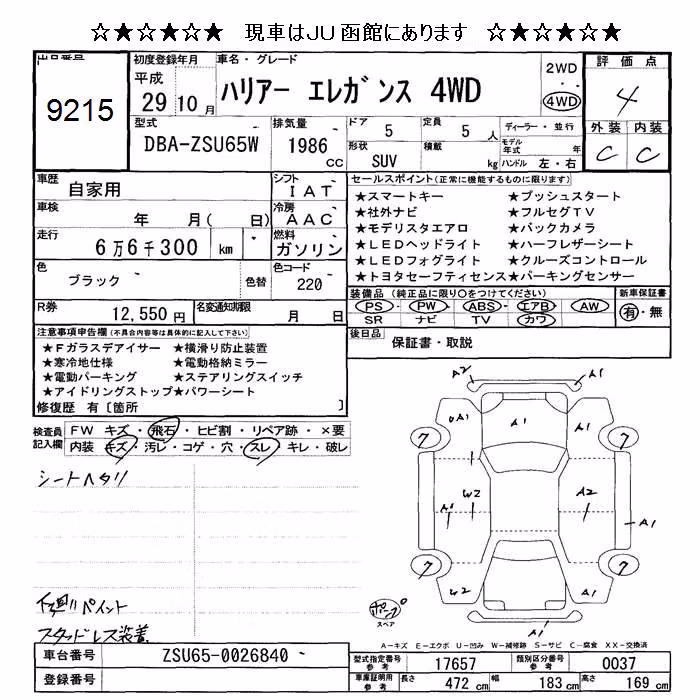 ☆★☆★☆★ 現車はJU函館にあります ☆★☆★☆★
出品番号
9215
初度登録年月
平成
29 10 月
車名・グレード
ハリアー エレガンス 4WD
2WD
・
4WD
評価点
4
外装 内装
C C
型式
DBA-ZSU65W
排気量
1986
CC
ドア
5
定員
5 人
形状
SUV
積載
kg
ディーラー・並行
モデル年式 年
ハンドル 左・右
車歴
自家用
シフト
IAT
車検
年 月( 日)
冷房
AAC
走行
6万6千300 km
燃料
ガソリン
色
ブラック
色替
色コード
220
R券
12,550円
名変通知期限
月 日
セールスポイント(正常に機能するものに限ります)
★スマートキー ★プッシュスタート
★社外ナビ ★フルセグTV
★モデリスタエアロ ★バックカメラ
★LEDヘッドライト ★ハーフレザーシート
★LEDフォグライト ★クルーズコントロール
★トヨタセーフティセンス★パーキングセンサー
装備品(純正品に限り○をつけてください)
PS・PW・ABS・エアB・AW
SR ナビ TV カワ
新車保証書
有・無
後日品
保証書・取説
注意事項申告欄(不具合内容等は具体的に記入して下さい)
★Fガラスデアイサー ★横滑り防止装置
★寒冷地仕様 ★電動格納ミラー
★電動パーキング ★ステアリングスイッチ
★アイドリングストップ★パワーシート
修復歴 有[箇所 ]
検査員記入欄
FW キズ・飛石・ヒビ割・リペア跡・×要
内装 キズ・汚レ・コゲ・穴・スレ・キレ・破レ
シートヘタリ
下廻りペイント
スタッドレス装着
A2 A1
UA1 A1 A1
7 7
W2 A2
A1 A1
7 7
W2 A1
A1
スペア
A=キズ E=エクボ U=凹み W=補修跡 S=サビ C=腐食 XX=交換済
車台番号
ZSU65-0026840
登録番号
型式指定番号
参考
17657
類別区分番号
参考
0037
車庫証明用
参考
長さ 472 cm
幅 183 cm
高さ 169 cm